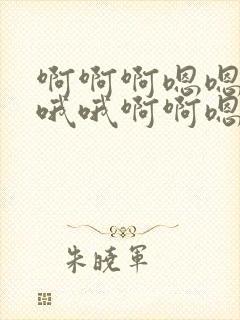 啊啊啊嗯嗯
哦哦啊啊嗯
朱晓军